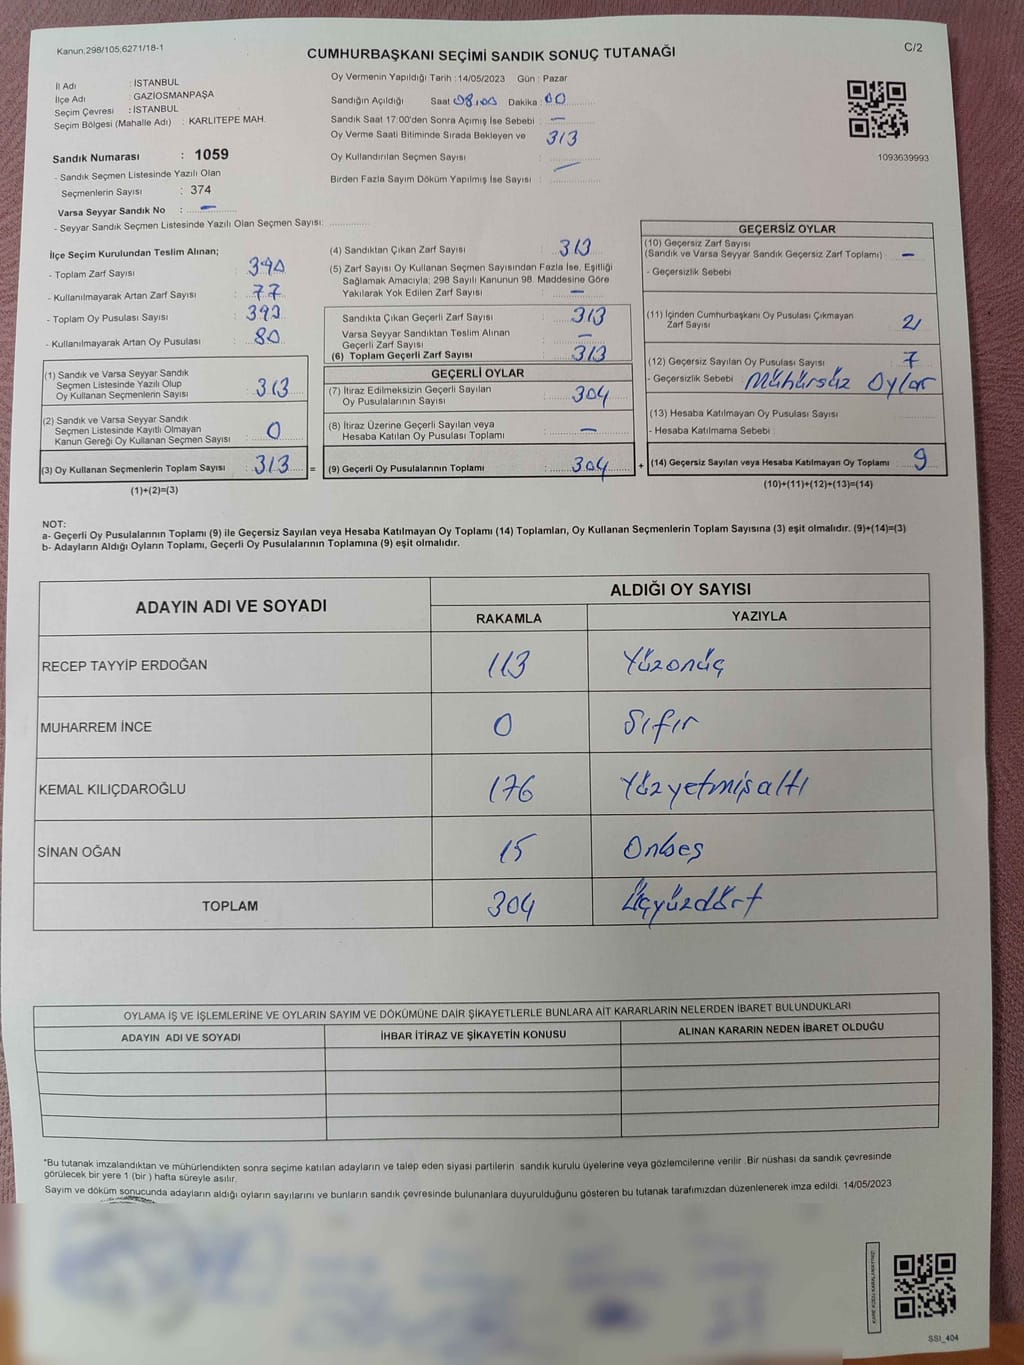 Kanun,298/105,6271/18-1
CUMHURBAŞKANI SEÇİMİ SANDIK SONUÇ TUTANAĞI
C/2
İl Adı : İSTANBUL
İlçe Adı : GAZİOSMANPAŞA
Seçim Çevresi : İSTANBUL
Seçim Bölgesi (Mahalle Adı) : KARLITEPE MAH.
Sandık Numarası : 1059
- Sandık Seçmen Listesinde Yazılı Olan
Seçmenlerin Sayısı : 374
Varsa Seyyar Sandık No : –
- Seyyar Sandık Seçmen Listesinde Yazılı Olan Seçmen Sayısı:
Oy Vermenin Yapıldığı Tarih :14/05/2023 Gün : Pazar
Sandığın Açıldığı Saat 08.00 Dakika : 00
Sandık Saat 17:00'den Sonra Açımış İse Sebebi : –
Oy Verme Saati Bitiminde Sırada Bekleyen ve 313
Oy Kullandırılan Seçmen Sayısı :
Birden Fazla Sayım Döküm Yapılmış İse Sayısı : –
1093639993
İlçe Seçim Kurulundan Teslim Alınan;
- Toplam Zarf Sayısı : 390
- Kullanılmayarak Artan Zarf Sayısı : 77
- Toplam Oy Pusulası Sayısı : 393
- Kullanılmayarak Artan Oy Pusulası : 80
(1) Sandık ve Varsa Seyyar Sandık
Seçmen Listesinde Yazılı Olup
Oy Kullanan Seçmenlerin Sayısı : 313
(2) Sandık ve Varsa Seyyar Sandık
Seçmen Listesinde Kayıtlı Olmayan
Kanun Gereği Oy Kullanan Seçmen Sayısı : 0
(3) Oy Kullanan Seçmenlerin Toplam Sayısı : 313 =
(1)+(2)=(3)
(4) Sandıktan Çıkan Zarf Sayısı : 313
(5) Zarf Sayısı Oy Kullanan Seçmen Sayısından Fazla İse, Eşitliği
Sağlamak Amacıyla; 298 Sayılı Kanunun 98. Maddesine Göre
Yakılarak Yok Edilen Zarf Sayısı : –
Sandıkta Çıkan Geçerli Zarf Sayısı : 313
Varsa Seyyar Sandıktan Teslim Alınan
Geçerli Zarf Sayısı : –
(6) Toplam Geçerli Zarf Sayısı : 313
GEÇERLİ OYLAR
(7) İtiraz Edilmeksizin Geçerli Sayılan
Oy Pusulalarının Sayısı : 304
(8) İtiraz Üzerine Geçerli Sayılan veya
Hesaba Katılan Oy Pusulası Toplamı : –
(9) Geçerli Oy Pusulalarının Toplamı : 304 +
GEÇERSİZ OYLAR
(10) Geçersiz Zarf Sayısı
(Sandık ve Varsa Seyyar Sandık Geçersiz Zarf Toplamı) : –
- Geçersizlik Sebebi
(11) İçinden Cumhurbaşkanı Oy Pusulası Çıkmayan
Zarf Sayısı : 2
(12) Geçersiz Sayılan Oy Pusulası Sayısı : 7
- Geçersizlik Sebebi Mühürsüz Oylar
(13) Hesaba Katılmayan Oy Pusulası Sayısı :
- Hesaba Katılmama Sebebi :
(14) Geçersiz Sayılan veya Hesaba Katılmayan Oy Toplamı : 9
(10)+(11)+(12)+(13)=(14)
NOT:
a- Geçerli Oy Pusulalarının Toplamı (9) ile Geçersiz Sayılan veya Hesaba Katılmayan Oy Toplamı (14) Toplamları, Oy Kullanan Seçmenlerin Toplam Sayısına (3) eşit olmalıdır. (9)+(14)=(3)
b- Adayların Aldığı Oyların Toplamı, Geçerli Oy Pusulalarının Toplamına (9) eşit olmalıdır.
ADAYIN ADI VE SOYADI
ALDIĞI OY SAYISI
RAKAMLA YAZIYLA
RECEP TAYYİP ERDOĞAN 113 Yüzonüç
MUHARREM İNCE 0 Sıfır
KEMAL KILIÇDAROĞLU 176 Yüzyetmişaltı
SİNAN OĞAN 15 Onbeş
TOPLAM 304 Üçyüzdört
OYLAMA İŞ VE İŞLEMLERİNE VE OYLARIN SAYIM VE DÖKÜMÜNE DAİR ŞİKAYETLERLE BUNLARA AİT KARARLARIN NELERDEN İBARET BULUNDUKLARI
ADAYIN ADI VE SOYADI İHBAR İTİRAZ VE ŞİKAYETİN KONUSU ALINAN KARARIN NEDEN İBARET OLDUĞU
*Bu tutanak imzalandıktan ve mühürlendikten sonra seçime katılan adayların ve talep eden siyasi partilerin sandık kurulu üyelerine veya gözlemcilerine verilir .Bir nüshası da sandık çevresinde
görülecek bir yere 1 (bir ) hafta süreyle asılır.
Sayım ve döküm sonucunda adayların aldığı oyların sayılarını ve bunların sandık çevresinde bulunanlara duyurulduğunu gösteren bu tutanak tarafımızdan düzenlenerek imza edildi. 14/05/2023
SSI_404